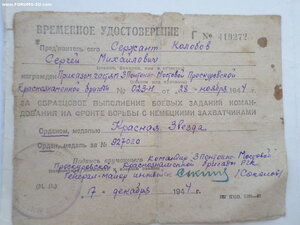 www.FORUMS-SU.com
ВРЕМЕННОЕ УДОСТОВЕРЕНИЕ Г № 419272
Предъявитель сего Сержант Колобов
Сергей Михайлович
награжден Приказ частям 3 Понтонно-Мостовой Проскуровской
Краснознаменной бригады № 023-н от "28" ноября 1944
ЗА ОБРАЗЦОВОЕ ВЫПОЛНЕНИЕ БОЕВЫХ ЗАДАНИЙ КОМАН-
ДОВАНИЯ НА ФРОНТЕ БОРЬБЫ С НЕМЕЦКИМИ ЗАХВАТЧИКАМИ
Орденом, медалью Красная Звезда
Орден, медаль за № 927020
Подпись вручившего Командир 3 Понтонно-Мостовой
Проскуровской Краснознаменной бригады РГК
Генерал-майор инж. войск (Соколов)
"17" декабря 1944 г.